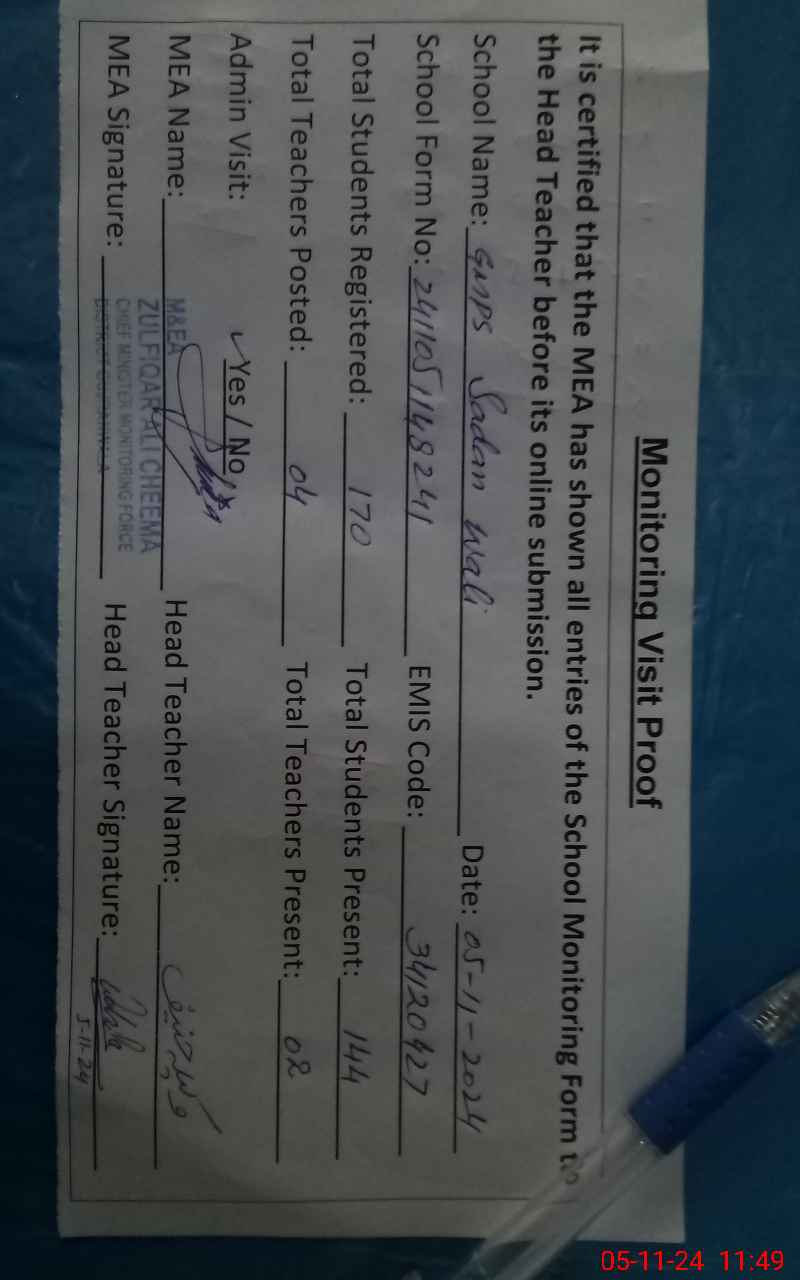 Monitoring Visit Proof
It is certified that the MEA has shown all entries of the School Monitoring Form to
the Head Teacher before its online submission.
School Name: GMPS Sadan Wali Date: 05-11-2024
School Form No: 2411051148241 EMIS Code: 34120427
Total Students Registered: 170 Total Students Present: 144
Total Teachers Posted: 04 Total Teachers Present: 02
Admin Visit: ✓Yes / No
MEA Name: Head Teacher Name:
M&EA
ZULFIQAR ALI CHEEMA
CHIEF MINISTER MONITORING FORCE
DISTRICT GUJRANWALA
MEA Signature: Head Teacher Signature:
5-11-24
05-11-24 11:49